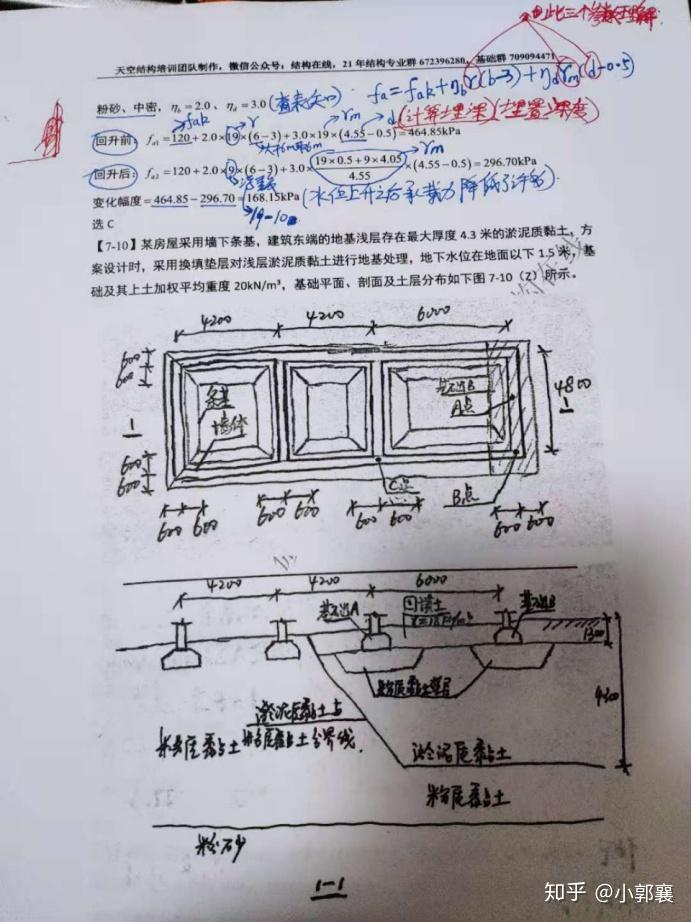 天空结构培训团队制作，微信公众号：结构在线，21 年结构专业群 672396280，基础群 709094471
粉砂、中密，ηb = 2.0、ηd = 3.0 (查表) fa = fak + ηb γ(b-3) + ηd γm (d-0.5)
fak γ γm d (计算埋深)(埋置深度)
回升前：fa1 = 120 + 2.0×19×(6−3)+3.0×19×(4.55−0.5)=464.85kPa
回升后：fa2 = 120 + 2.0×9×(6−3)+3.0× (19×0.5+9×4.05)/4.55 ×(4.55−0.5) = 296.70kPa
γm
浮重度
变化幅度 = 464.85 − 296.70 = 168.15kPa (水位上升之后承载力降低了许多)
19-10
选 C
【7-10】某房屋采用墙下条基，建筑东端的地基浅层存在最大厚度 4.3 米的淤泥质黏土，方
案设计时，采用换填垫层对浅层淤泥质黏土进行地基处理，地下水位在地面以下 1.5 米，基
础及其上土加权平均重度 20kN/m³，基础平面、剖面及土层分布如下图 7-10（Z）所示。
4200 4200 6000
600
600
条基
墙体
基础B
A点
4800
1
1
600
600
C点
B点
600 600 600 600 600 600 600 600
4200 4200 6000
基础A
回填土
基础B
1300
粉质黏土垫层
4300
淤泥质黏土与
粉质黏土 粉质黏土分界线
淤泥质黏土
粉质黏土
粉砂
1-1
知乎 @小郭襄